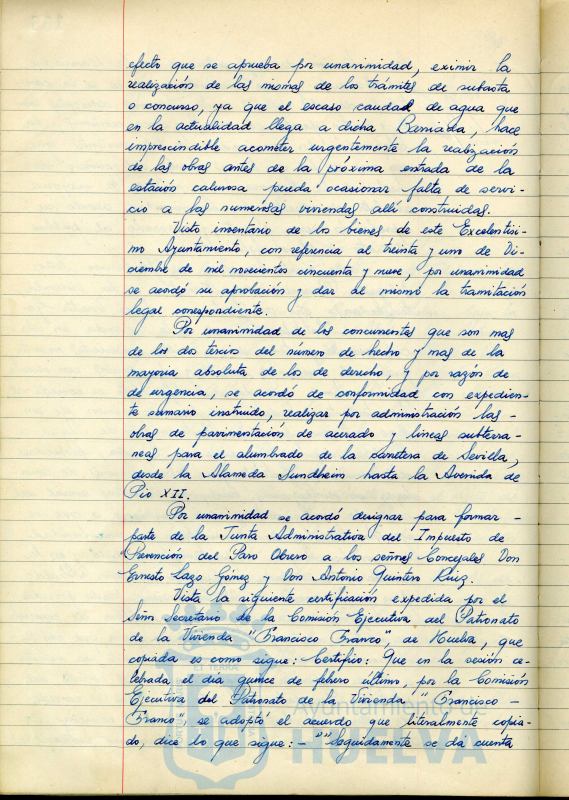 efecto que se aprueba por unanimidad, eximir la
realización de las mismas de los trámites de subasta
o concurso, ya que el escaso caudal de agua que
en la actualidad llega a dicha Barriada, hace
imprescindible acometer urgentemente la realización
de las obras antes de la próxima entrada de la
estación calurosa pueda ocasionar falta de servi-
cio a las numerosas viviendas allí construidas.
Visto inventario de los bienes de este Excelentísi-
mo Ayuntamiento, con referencia al treinta y uno de Di-
ciembre de mil novecientos cincuenta y nueve, por unanimidad
se acordó su aprobación y dar al mismo la tramitación
legal correspondiente.
Por unanimidad de los concurrentes que son mas
de los dos tercios del número de hecho y mas de la
mayoria absoluta de los de derecho, y por razón de
de urgencia, se acordó de conformidad con expedien-
te sumario instruido, realizar por administración las -
obras de pavimentación de acerado y lineas subterra-
neas para el alumbrado de la carretera de Sevilla,
desde la Alameda Sundheim hasta la Avenida de
Pio XII.
Por unanimidad se acordó designar para formar -
parte de la Junta Administrativa del Impuesto de
Prevención del Paro Obrero a los señores Concejales Don
Ernesto Lazo Gómez y Don Antonio Quintero Ruiz.
Vista la siguiente certificación expedida por el
Señor Secretario de la Comisión Ejecutiva del Patronato
de la Vivienda "Francisco Franco", de Huelva, que
copiada es como sigue: Certifico: Que en la sesión ce-
lebrada el dia quince de febrero último, por la Comisión
Ejecutiva del Patronato de la Vivienda "Francisco -
Franco", se adoptó el acuerdo que literalmente copia-
do, dice lo que sigue: - ""Seguidamente se da cuenta
Ayuntamiento de
HUELVA